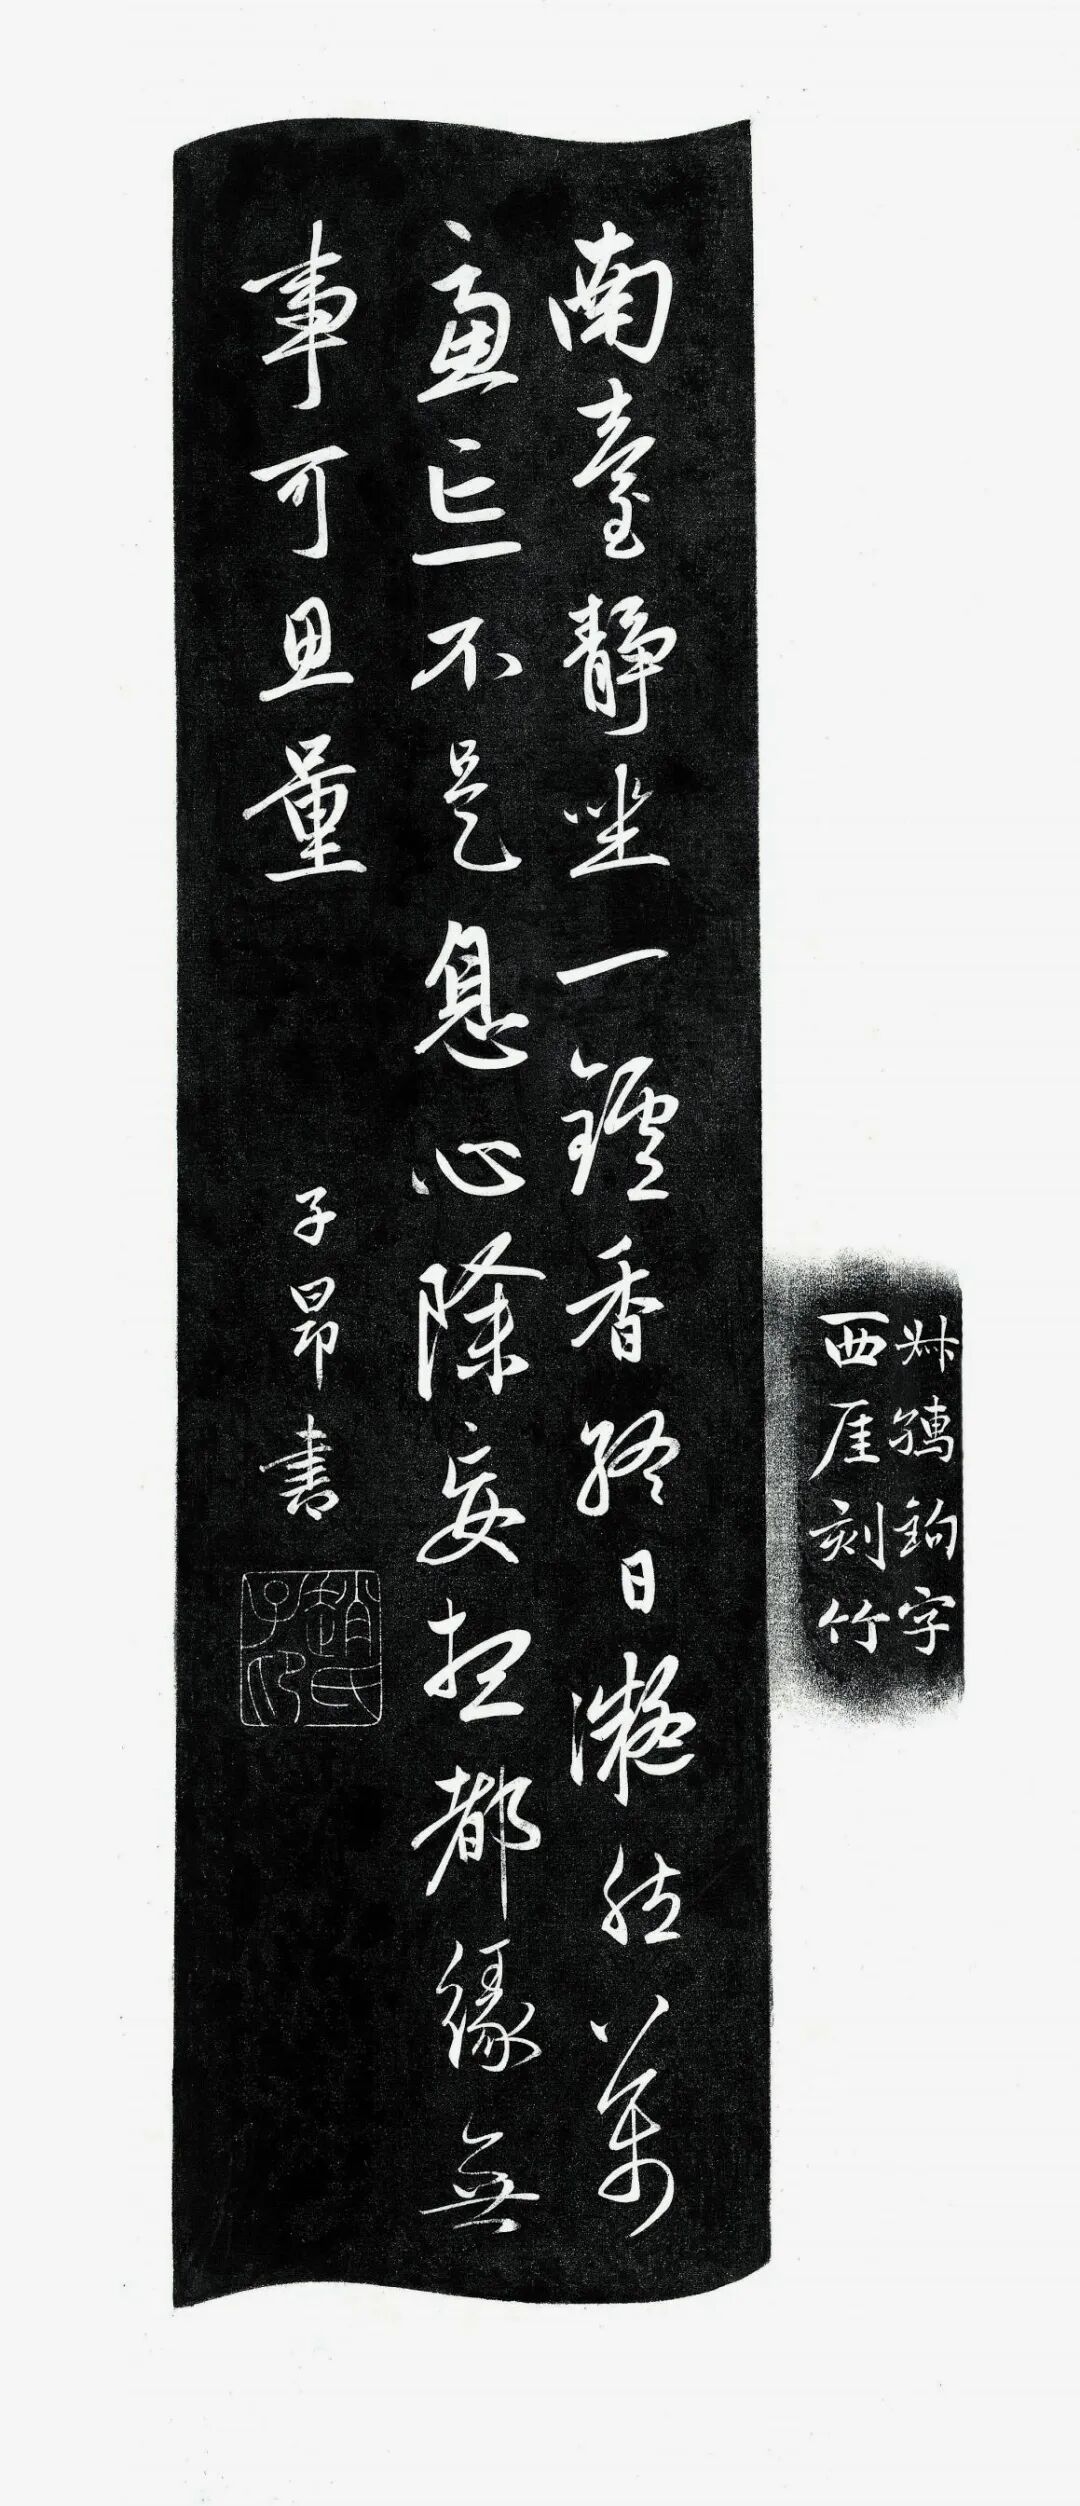 鉤字
西厓刻竹
南臺靜坐一鑪香終日凝然萬
慮亡不是息心除妄想都緣無
事可思量 子昂書
趙氏
子卬